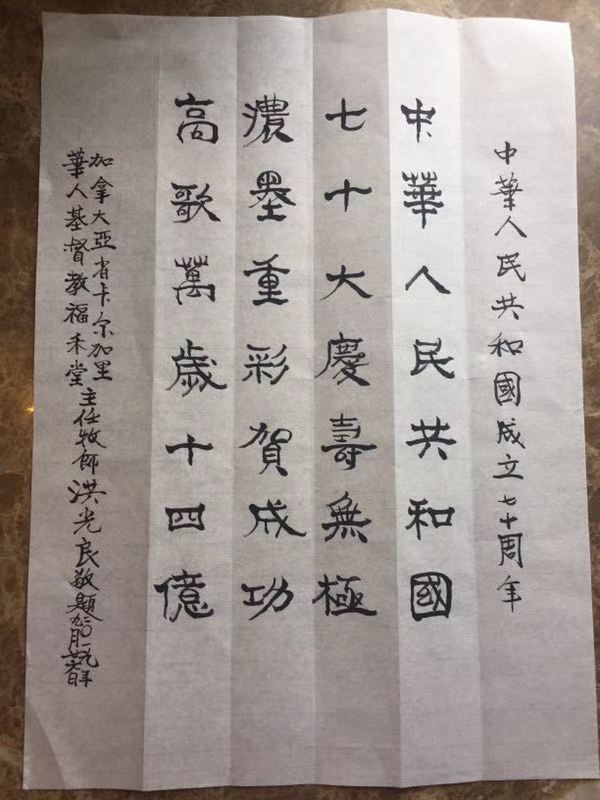 中華人民共和國成立七十周年
中華人民共和國
七十大慶壽無極
濃墨重彩賀成功
高歌萬歲十四億
加拿大亞省卡尔加里
華人基督教福禾堂主任牧師洪光良敬題